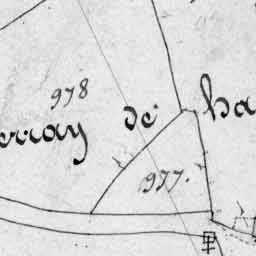 978
erray de ha
977.